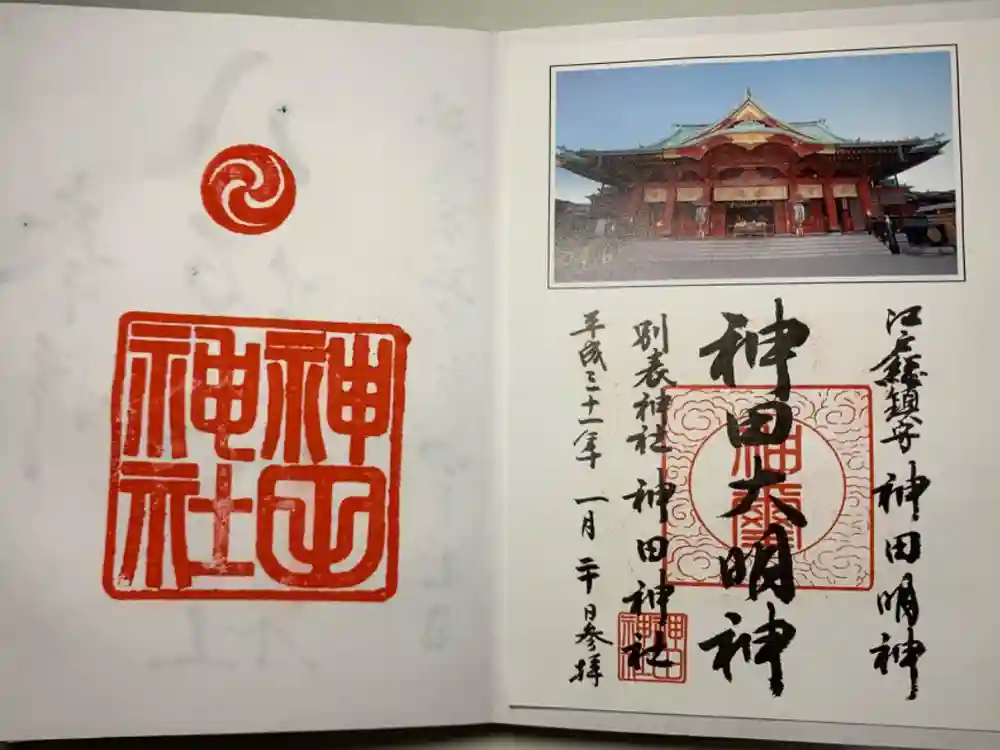 江戸総鎮守 神田明神
神田大明神
別表神社 神田神社
平成三十一年 一月 二十日参拝
神田
神社
神田
神社